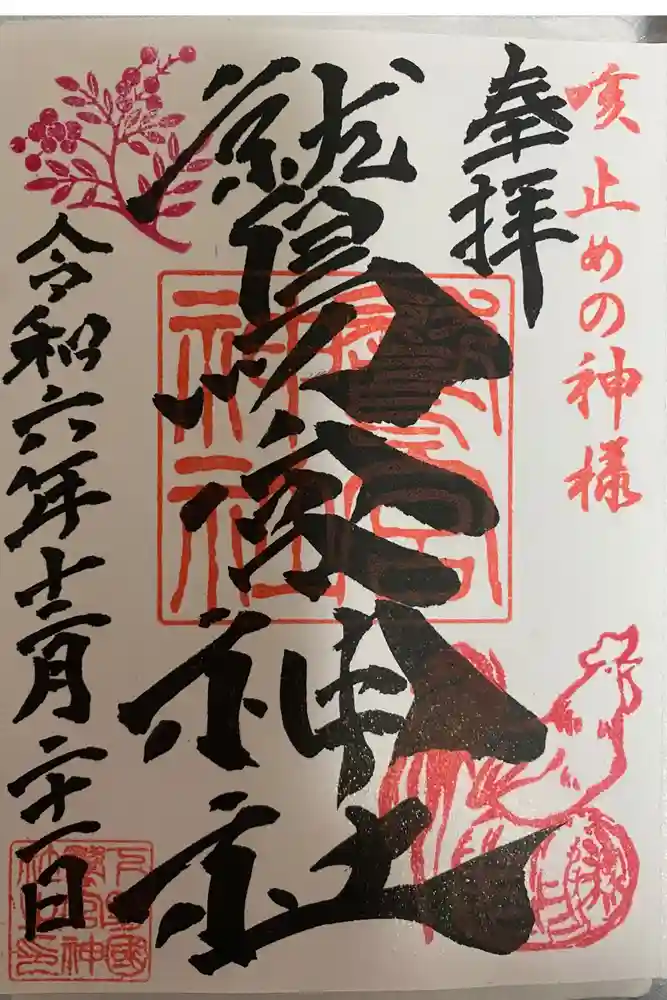 咳止めの神様
奉拝
鷲宮神社
鷲宮
神社
令和六年十二月二十一日
下野國
鷲宮神
社之印